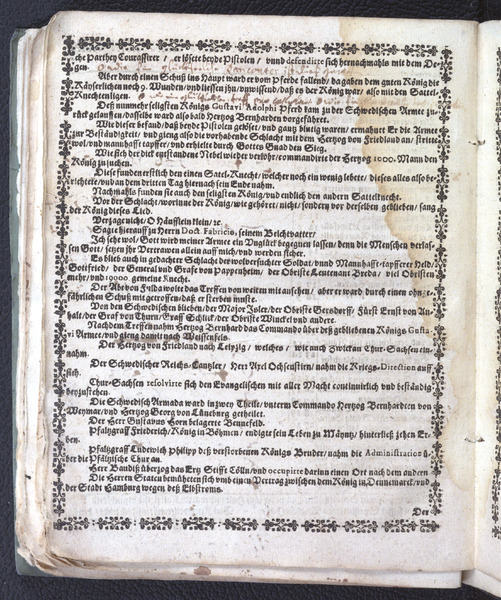 che Parthey Courassirer / er lösete beyde Pistolen / vnnd defendirte sich hernachmahls mit dem De-
gen.
Aber durch einen Schuß ins Haupt ward er vom Pferde fallend / da gaben dem guten König die
Käiserlichen noch 9. Wunden / vnd liessen ihn / vnwissend / daß es der König war / also mit den Sattel-
Knechten ligen.
Deß nunmehr seligsten Königs Gustavi Adolphi Pferd kam zu der Schwedischen Armee zu-
rück gelauffen / dasselbe ward also bald Hertzog Bernharden vorgeführet.
Wie dieser besand / daß beyde Pistolen gelöset / vnd gantz blutig waren / ermahnet Er die Armee
zur Beständigkeit / vnd gieng also die vorhabende Schlacht mit dem Hertzog von Friedland an / stritte
wol / vnd manuhafft tapffer / vnd erhielte durch Gottes Gnad den Sieg.
Wie sich der dick entstandene Nebel wieder verlohr / commandirte der Hertzog 1000. Mann den
König zu suchen.
Diese funden erstlich den einen Satel-Knecht / welcher noch ein wenig lebete / dieses alles also be-
richtete / vnd an dem dritten Tag hiernach sein Ende nahm.
Nachmahls funden sie auch den seligsten König / vnd endlich den andern Sattelknecht.
Vor der Schlacht / worinne der König / wie gehöret / nicht / sondern vor derselben geblieben / sang
der König dieses Lied.
Verzage nicht / O Häufflein klein / ꝛc.
Sagte hierauff zu Herrn Doct. Fabricio, seinem Beichtvatter /
Ich sehe wol / Gott wird meiner Armee ein Vnglück begegnen lassen / denn die Menschen verlas-
sen Gott / setzen ihr Vertrawen allein auff mich / vnd werden sicher.
Es blieb auch in gedachter Schlacht der vorberühter Soldat / vnnd Mannhafft-tapfferer Held /
Gottfried / der General vnd Grafe von Pappenheim / der Obriste Leutenant Breda / viel Obristen
mehr / vnd 10000. gemeine Knecht.
Der Abt von Fulda wolte das Treffen von weiten mit ansehen / aber er ward durch einen ohnge-
fährlichen Schuß mit getroffen / daß er sterben muste.
Von den Schwedischen blieben / der Major Isler / der Obriste Gersdorff / Fürst Ernst von An-
halt / der Graf von Thurn / Graff Schlick / der Obriste Winckel vnd andere.
Nachdem Treffen nahm Hertzog Bernhard das Commando über deß gebliebenen Königs Gusta-
vi Armee / vnd gieng damit nach Weissenfels.
Der Hertzog von Friedland nach Leipzig / welches / wie auch Zwickau Chur-Sachsen ein-
nahm.
Der Schwedischer Reichs-Cantzler / Herr Axel Ochsenstirn / nahm die Kriegs-Direction auff
sich.
Chur-Sachsen resolvirte sich den Evangelischen mit aller Macht continuirlich vnd beständig
beyzustehen.
Die Schwedisch Armada ward in zwey Theile / vnterm Commando Hertzog Bernhardten von
Weymar / vnd Hertzog Georg von Lüneburg getheilet.
Der Herr Gustavus Horn belagerte Bennefeld.
Pfaltzgraff Friederich / König in Böhmen / endigte sein Leben zu Mäyntz / hinterließ zehen Er-
ben.
Pfaltzgraff Ludewich Philipp deß verstorbenen Königs Bruder / nahm die Administration ü-
ber die Pfältzische Chur an.
Herr Baudiß überzog das Ertz Stifft Cölln / vnd occupirte darinn einen Ort nach dem andern
Die Herren Staten bemüheten sich vmb einen Vertrag zwischen dem König in Dennemarck / vnd
der Stadt Hamburg wegen deß Elbstroms.
Der